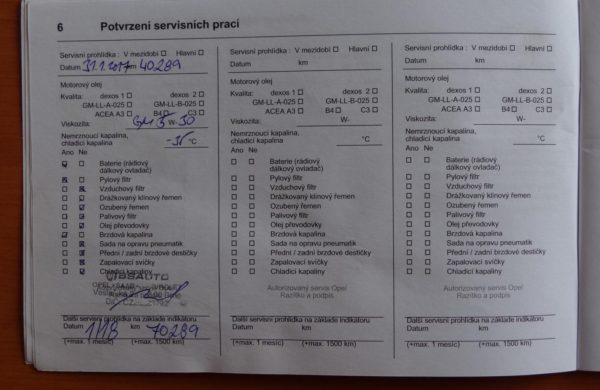 6 Potvrzení servisních prací
Servisní prohlídka : V mezidobí ☐ Hlavní ☐
Datum 31.1.2017 km 40289
Motorový olej
Kvalita: dexos 1 ☐ dexos 2 ☐
GM-LL-A-025 ☐ GM-LL-B-025 ☐
ACEA A3 ☐ B4 ☐ C3 ☐
Viskozita: 5 W- 30
Nemrznoucí kapalina,
chladicí kapalina -35 °C
Ano Ne
Baterie (rádiový
dálkový ovladač)
Pylový filtr
Vzduchový filtr
Drážkovaný klínový řemen
Ozubený řemen
Palivový filtr
Olej převodovky
Brzdová kapalina
Sada na opravu pneumatik
Přední / zadní brzdové destičky
Zapalovací svíčky
Chladicí kapaliny
Další servisní prohlídka na základě indikátoru
Datum 1/18 km 70289
(+max. 1 měsíc) (+max. 1500 km)
Servisní prohlídka : V mezidobí ☐ Hlavní ☐
Datum km
Motorový olej
Kvalita: dexos 1 ☐ dexos 2 ☐
GM-LL-A-025 ☐ GM-LL-B-025 ☐
ACEA A3 ☐ B4 ☐ C3 ☐
Viskozita: W-
Nemrznoucí kapalina,
chladicí kapalina °C
Ano Ne
☐ ☐ Baterie (rádiový
dálkový ovladač)
☐ ☐ Pylový filtr
☐ ☐ Vzduchový filtr
☐ ☐ Drážkovaný klínový řemen
☐ ☐ Ozubený řemen
☐ ☐ Palivový filtr
☐ ☐ Olej převodovky
☐ ☐ Brzdová kapalina
☐ ☐ Sada na opravu pneumatik
☐ ☐ Přední / zadní brzdové destičky
☐ ☐ Zapalovací svíčky
☐ ☐ Chladicí kapaliny
Autorizovaný servis Opel
Razítko a podpis
Další servisní prohlídka na základě indikátoru
Datum km
(+max. 1 měsíc) (+max. 1500 km)
Servisní prohlídka : V mezidobí ☐ Hlavní ☐
Datum km
Motorový olej
Kvalita: dexos 1 ☐ dexos 2 ☐
GM-LL-A-025 ☐ GM-LL-B-025 ☐
ACEA A3 ☐ B4 ☐ C3 ☐
Viskozita: W-
Nemrznoucí kapalina,
chladicí kapalina °C
Ano Ne
☐ ☐ Baterie (rádiový
dálkový ovladač)
☐ ☐ Pylový filtr
☐ ☐ Vzduchový filtr
☐ ☐ Drážkovaný klínový řemen
☐ ☐ Ozubený řemen
☐ ☐ Palivový filtr
☐ ☐ Olej převodovky
☐ ☐ Brzdová kapalina
☐ ☐ Sada na opravu pneumatik
☐ ☐ Přední / zadní brzdové destičky
☐ ☐ Zapalovací svíčky
☐ ☐ Chladicí kapaliny
Autorizovaný servis Opel
Razítko a podpis
Další servisní prohlídka na základě indikátoru
Datum km
(+max. 1 měsíc) (+max. 1500 km)